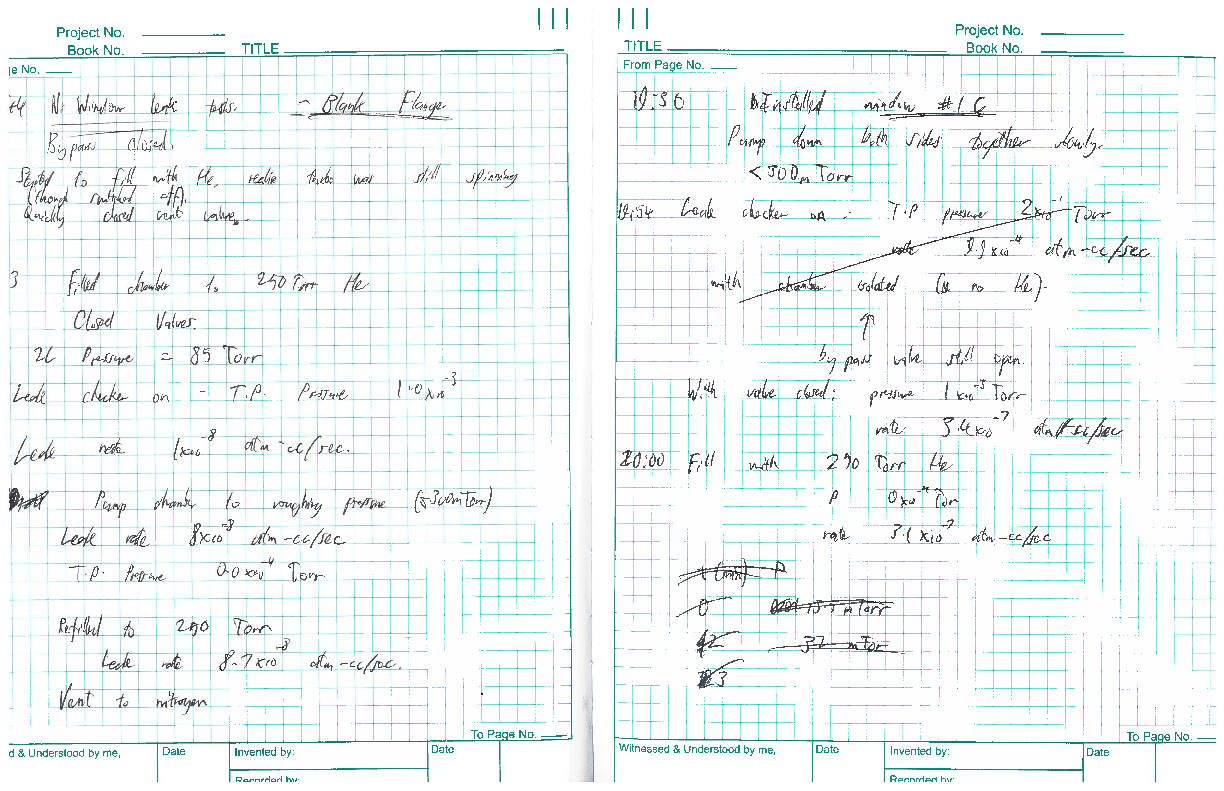 Project No.
Book No.
TITLE
e No.
Window leak tests. - Blank Flange
Bypass closed.
Started to fill with He, realise turbo was still spinning
(though switched off).
Quickly closed vent valve.
3 Filled chamber to 250 Torr He
Closed Valves.
Pressure = 85 Torr
Leak checker on - T.P. Pressure 1.0x10-3
Leak rate 1x10-8 atm-cc/sec.
Pump chamber to roughing pressure (<300mTorr)
Leak rate 8x10-8 atm-cc/sec
T.P. Pressure 0.0x10-4 Torr
Refilled to 250 Torr
Leak rate 8.7x10-8 atm-cc/sec.
Vent to nitrogen
To Page No.
d & Understood by me,
Date
Invented by:
Date
Recorded by:
Project No.
TITLE
Book No.
From Page No.
Installed window #16
Pump down both sides together slowly.
<500m Torr
Leak checker on - T.P pressure 2x10-1 Torr
rate atm-cc/sec
with chamber isolated (no He).
↑
bypass valve still open
With valve closed: pressure 1x10-3 Torr
rate 3.4x10-7 atm-cc/sec
20:00 Fill with 250 Torr He
P 0x10-4 Torr
rate 3.1x10-7 atm-cc/sec
t (min) P
0 mTorr
37 mTorr
To Page No.
Witnessed & Understood by me,
Date
Invented by:
Date
Recorded by: